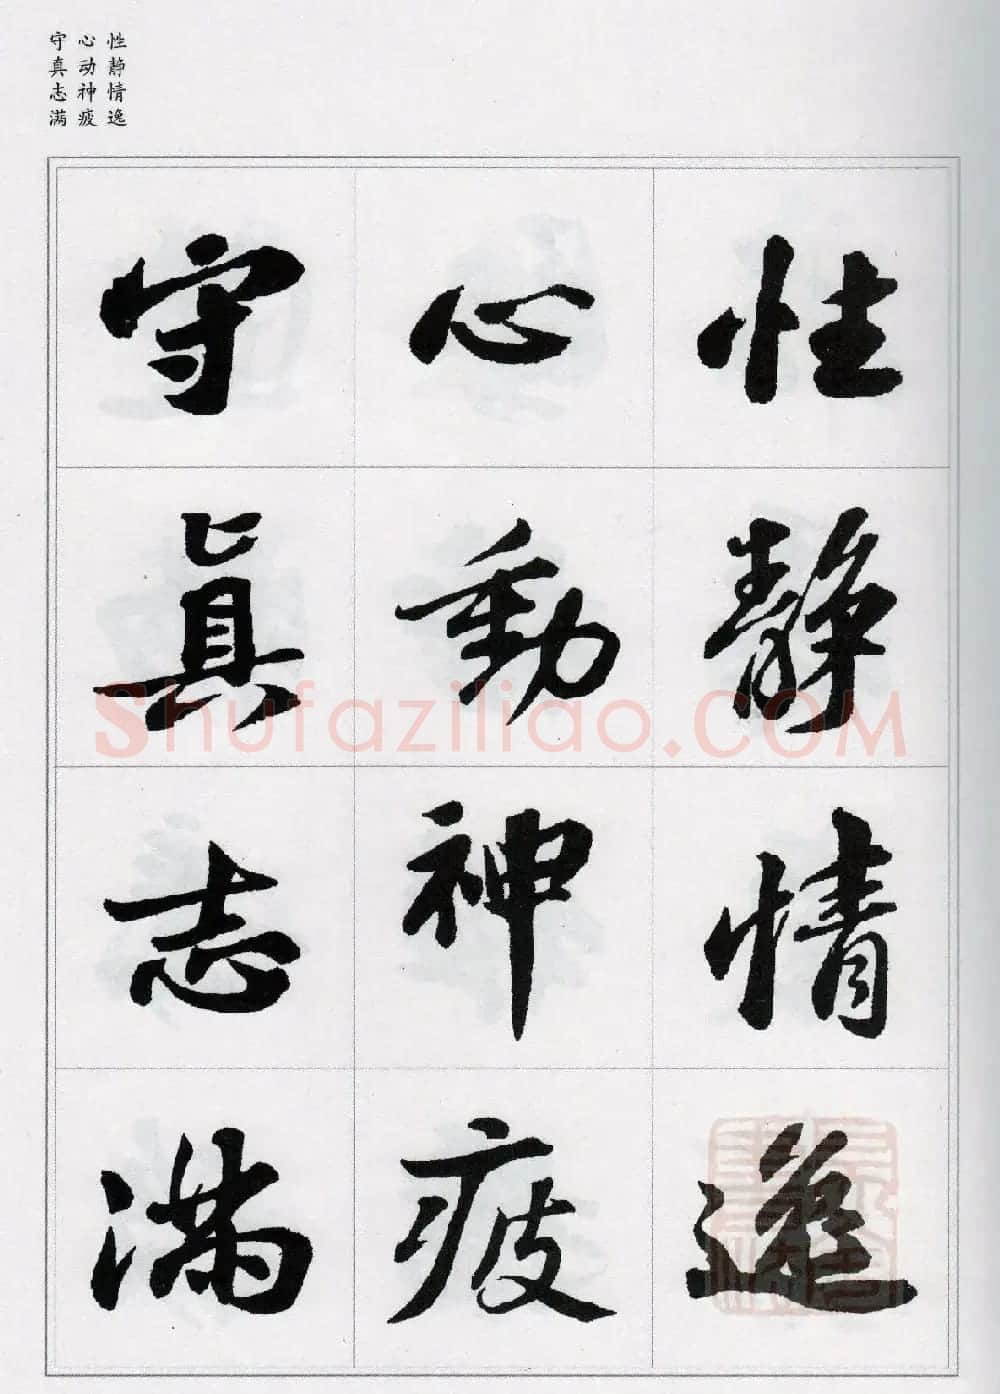 性静情逸
心动神疲
守真志满
性靜情逸
心動神疲
守真志滿
Shufaziliao.COM